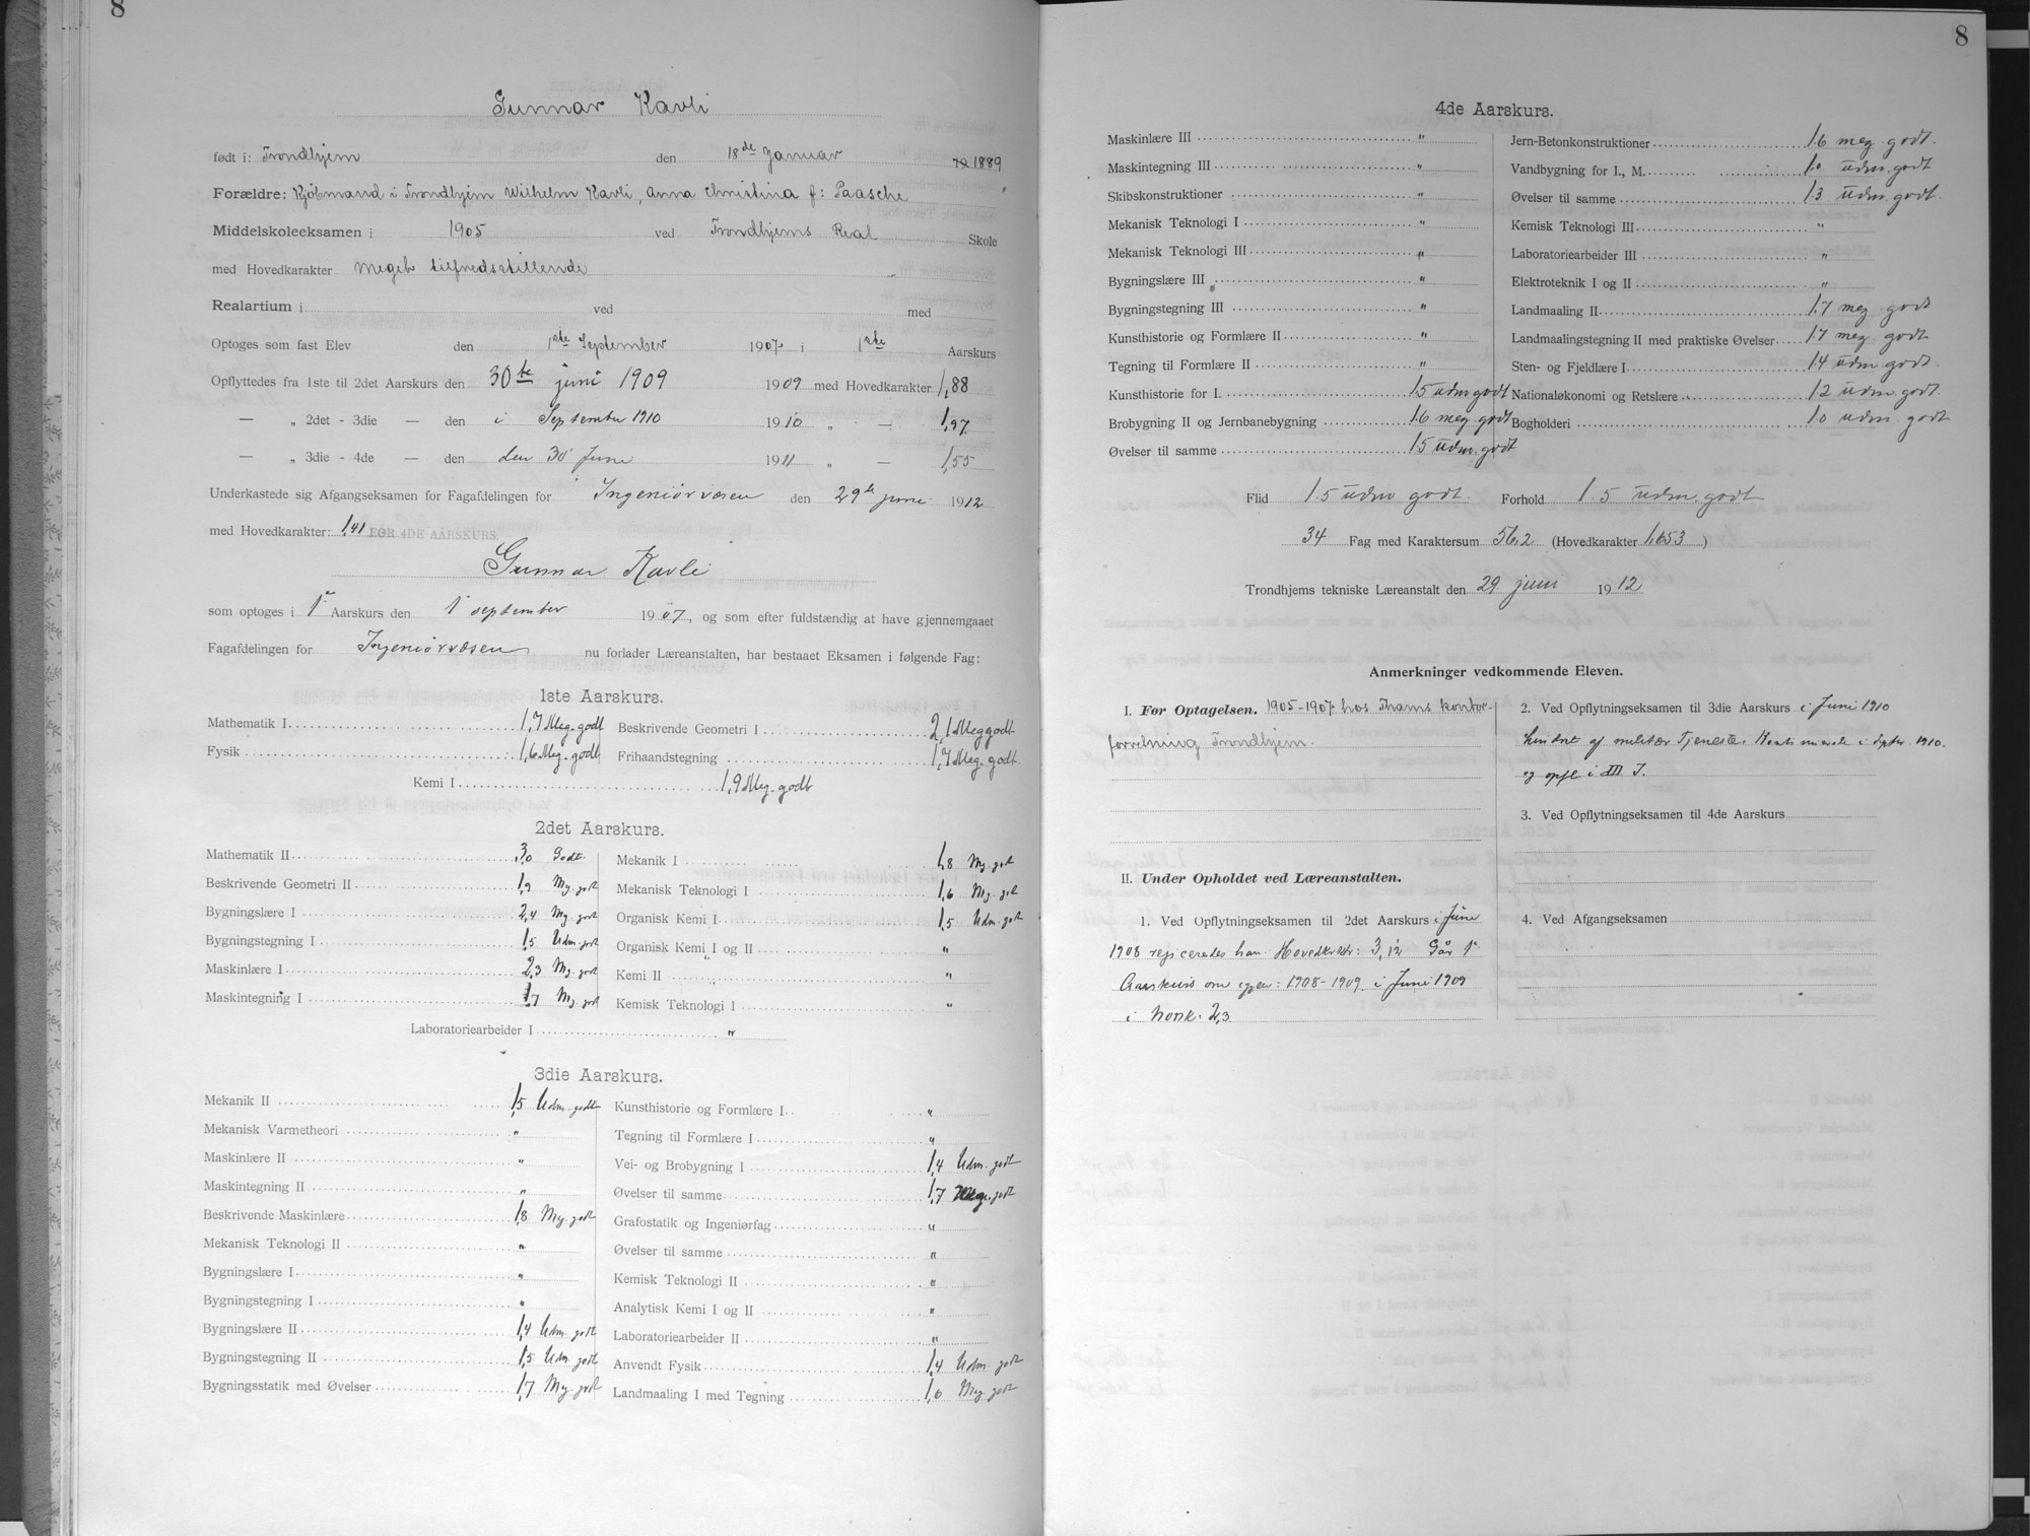 8
Gunnar Kavli
født i: Trondhjem den 18de Januar 1889
Forældre: Kjøbmand i Trondhjem Wilhelm Kavli, Anna Christina f: Paasche
Middelskoleeksamen i 1905 ved Trondhjems Real Skole
med Hovedkarakter Meget tilfredsstillende
Realartium i ved med
Optoges som fast Elev den 1ste September 1907 i 1ste Aarskurs
Opflyttedes fra 1ste til 2det Aarskurs den 30te juni 1909 1909 med Hovedkarakter 1,88
— „ 2det - 3die — den i September 1910 1910 „ — 1,97
— „ 3die - 4de — den den 30 Juni 1911 „ — 1,55
Underkastede sig Afgangseksamen for Fagafdelingen for Ingeniørvæsen den 29de juni 1912
med Hovedkarakter: 1,41 FOR 4DE AARSKURS.
Gunnar Kavli
som optoges i 1ste Aarskurs den 1 september 1907, og som efter fuldstændig at have gjennemgaaet
Fagafdelingen for Ingeniørvæsen nu forlader Læreanstalten, har bestaaet Eksamen i følgende Fag:
1ste Aarskurs.
Mathematik I 1,7 Meg. godt Beskrivende Geometri I 2,1 Meg godt
Fysik 1,6 Meg. godt Frihaandstegning 1,7 Meg. godt
Kemi I 1,9 Meg. godt
2det Aarskurs.
Mathematik II 3,0 Godt. Mekanik I 1,8 Mg. godt
Beskrivende Geometri II 1,9 Mg. godt Mekanisk Teknologi I 1,6 Mg. godt
Bygningslære I 2,4 Mg. godt Organisk Kemi I 1,5 Udm. godt
Bygningstegning I 1,5 Udm. godt Organisk Kemi I og II "
Maskinlære I 2,3 Mg. godt Kemi II "
Maskintegning I 1,7 Mg. godt Kemisk Teknologi I "
Laboratoriearbeider I "
3die Aarskurs.
Mekanik II 1,5 Udm. godt Kunsthistorie og Formlære I "
Mekanisk Varmetheori " Tegning til Formlære I "
Maskinlære II " Vei- og Brobygning I 1,4 Udm. godt
Maskintegning II " Øvelser til samme 1,7 Meg. godt
Beskrivende Maskinlære 1,8 Mg. godt Grafostatik og Ingeniørfag "
Mekanisk Teknologi II " Øvelser til samme "
Bygningslære I " Kemisk Teknologi II "
Bygningstegning I " Analytisk Kemi I og II "
Bygningslære II 1,4 Udm. godt Laboratoriearbeider II "
Bygningstegning II 1,5 Udm. godt Anvendt Fysik 1,4 Udm. godt
Bygningsstatik med Øvelser 1,7 Mg. godt Landmaaling I med Tegning 1,6 Mg. godt
8
4de Aarskurs.
Maskinlære III " Jern-Betonkonstruktioner 1.6 meg. godt.
Maskintegning III " Vandbygning for I., M. 1.0 udm. godt
Skibskonstruktioner " Øvelser til samme 1.3 udm. godt.
Mekanisk Teknologi I " Kemisk Teknologi III "
Mekanisk Teknologi III " Laboratoriearbeider III "
Bygningslære III " Elektroteknik I og II "
Bygningstegning III " Landmaaling II 1.7 meg. godt
Kunsthistorie og Formlære II " Landmaalingstegning II med praktiske Øvelser 1.7 meg. godt
Tegning til Formlære II " Sten- og Fjeldlære I 1.4 udm. godt.
Kunsthistorie for I. 1.5 udm godt Nationaløkonomi og Retslære 1.2 udm. godt.
Brobygning II og Jernbanebygning 1.6 meg. godt Bogholderi 1.0 udm. godt
Øvelser til samme 1.5 udm. godt
Flid 1.5 udm godt. Forhold 1.5 udm. godt
34 Fag med Karaktersum 56.2 (Hovedkarakter 1.653)
Trondhjems tekniske Læreanstalt den 29 juni 1912
Anmerkninger vedkommende Eleven.
I. Før Optagelsen. 1905-1907 hos Thams kontor-
forretning Trondhjem.
II. Under Opholdet ved Læreanstalten.
1. Ved Opflytningseksamen til 2det Aarskurs i Juni
1908 rejiceredes han. Hovedkrktr: 3,12 Går 1ste
Aarskurs om igjen: 1908-1909. i Juni 1909
i Norsk: 2,3
2. Ved Opflytningseksamen til 3die Aarskurs i Juni 1910
hindret af militær Tjeneste. Kontinuerede i Septbr. 1910.
og opfl i III I.
3. Ved Opflytningseksamen til 4de Aarskurs
4. Ved Afgangseksamen